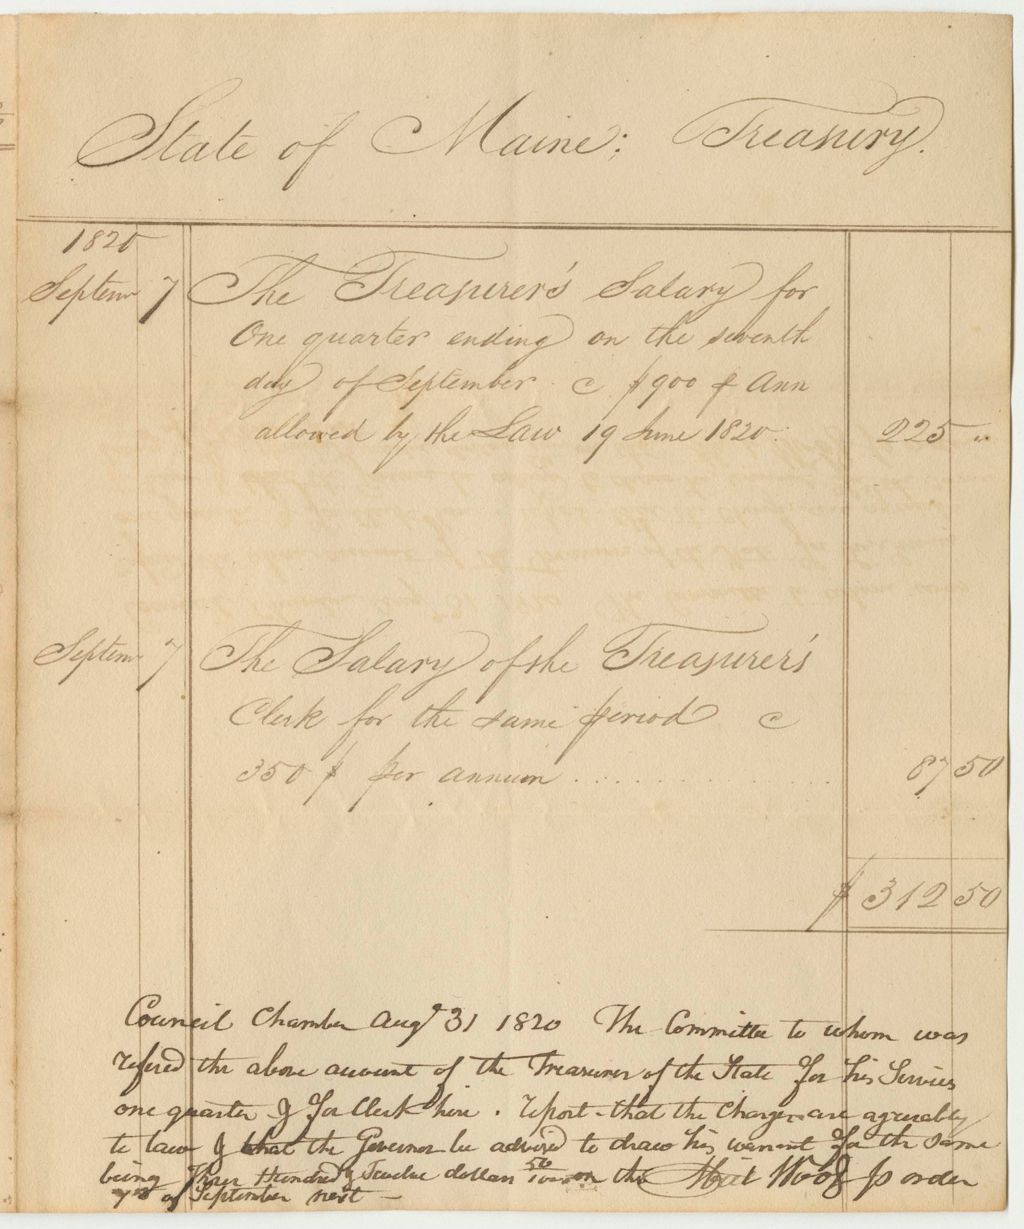 State of Maine; Treasury.
1820
Septem 7 The Treasurer's Salary for
One quarter ending on the seventh
day of September c $900 ⅌ Ann
allowed by the Law 19 June 1820. 225 "
Septem 7 The Salary of the Treasurer's
Clerk for the same period c
350 $ per annum . . . . . . . . . . . . . 87 50
$ 312 50
Council Chamber Augt 31 1820 The Committee to whom was
refered the above account of the Treasurer of the State for his Services
one quarter & for Clerk hire. report - that the Charges are agreeably
to law & that the Governor be advised to draw his warrant for the same
being Three Hundred & Twelve dollars 50/100 on the
order
7th of September next —